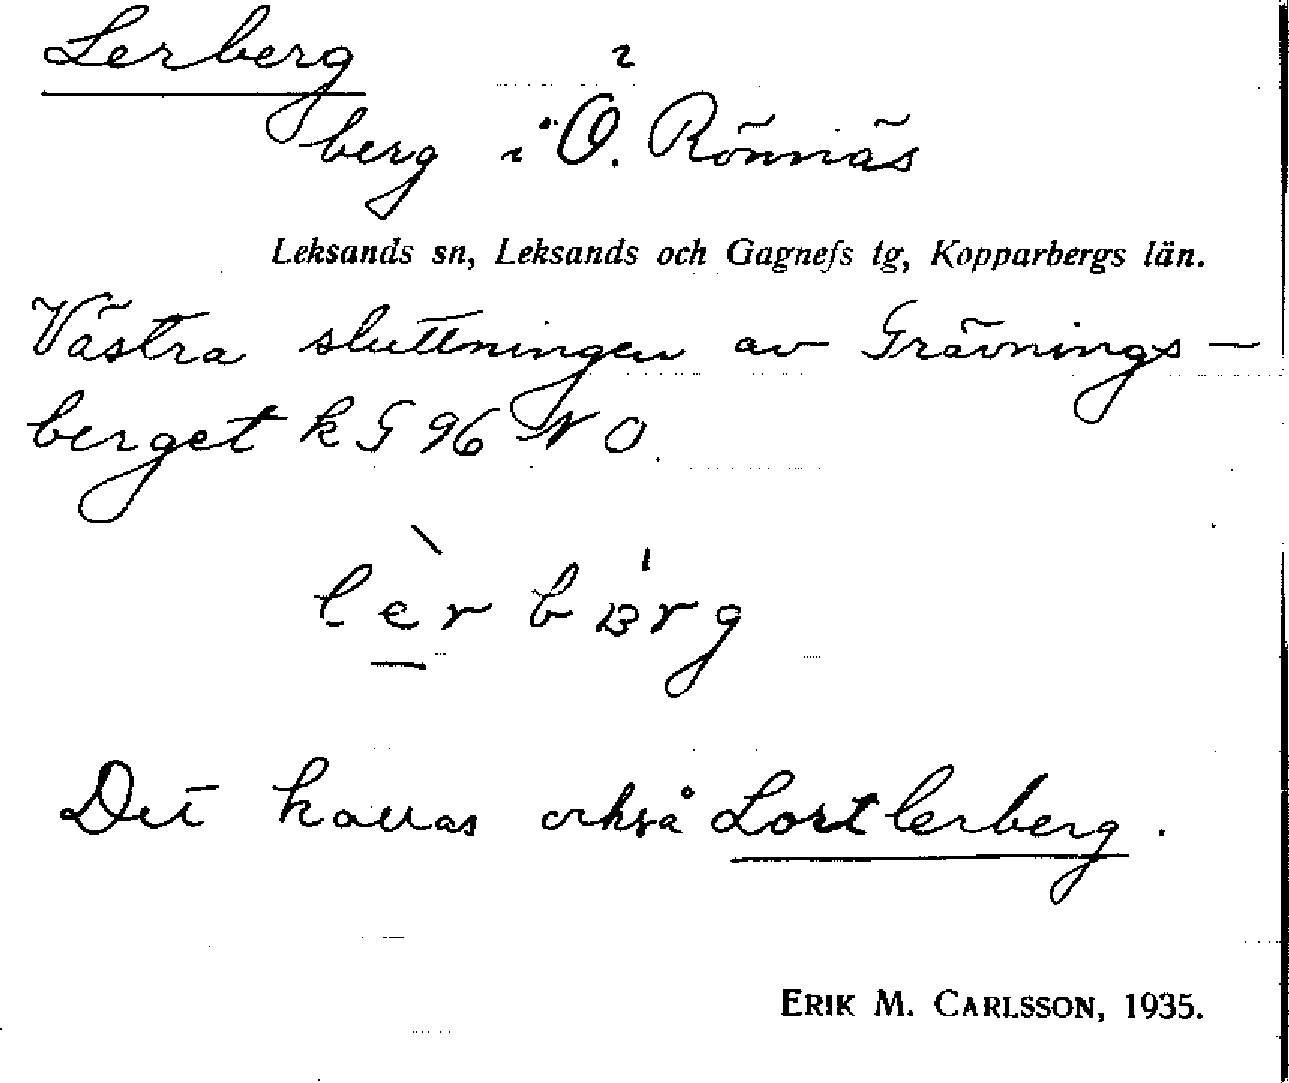 Lerberg 2
berg i Ö. Rönnäs
Leksands sn, Leksands och Gagnefs tg, Kopparbergs län.
Västra sluttningen av Grävnings-
berget k G 96 NO.
lèrbärg
Det kallas också Lortlerberg.
ERIK M. CARLSSON, 1935.